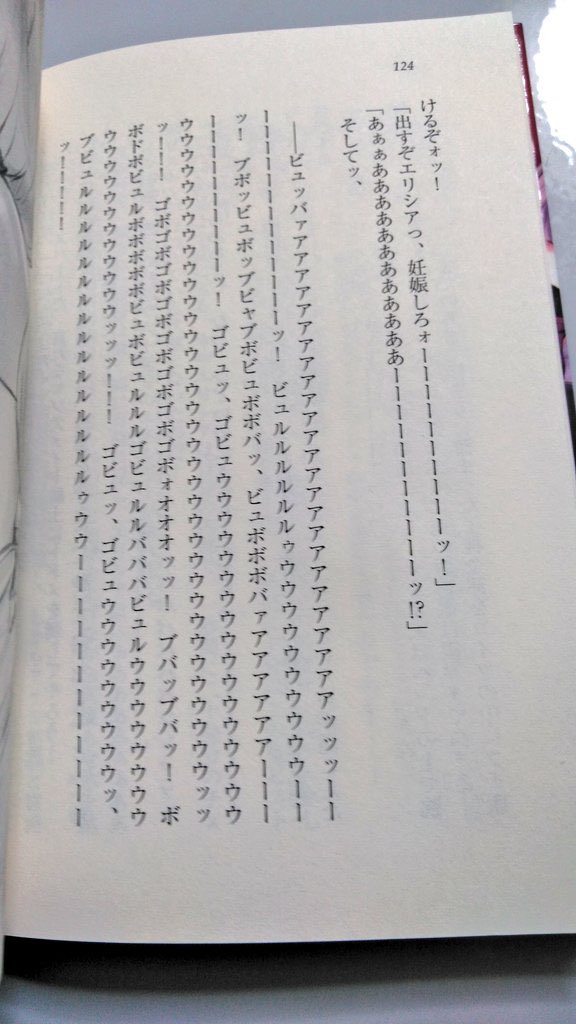 124
けるぞォッ！
「出すぞエリシアっ、妊娠しろォーーーーーーーーーーッ！」
「あぁぁあああああああああああああーーーーーーーーーーッ!?」
そしてッ、
――ビュッバァアアアアアアアアアアアアアアアアアアアアアアアアアアアアアアアッッッーー
ーーーーーーーーーーーーーーーッ！　ビュルルルルルルゥウウウウウウウウウウウウウーー
ッ！　ブボッビュボッブビャブボビュボボバッ、ビュボボボバァアアアアアアアアーーー
ーーーーーーーーーーーッ！　ゴビュッ、ゴビュウウウウウウウウウウウウウウウウウウウウ
ウウウウウウウウウウウウウウウウウウウウウウウウウウウウウウウウウウウウウウウウウウウッッ
ッ！！！　ゴボゴボゴボゴボゴボゴボゴボゴボゴボォオオオッッ！　ブバッブバッ！　ボ
ボドボビュルボボボボボボビュボビュルルルゴビュルルバババビュルウウウウウウウウウ
ウウウウウウウウウウウウウウウッッッ！！！　ゴビュッ、ゴビュウウウウウウウウウウウッ、
ブビュルルルルルルルルルルルルルルルルルルルルルルゥウウーーーーーーーーーーーー
ッ！ーーーー